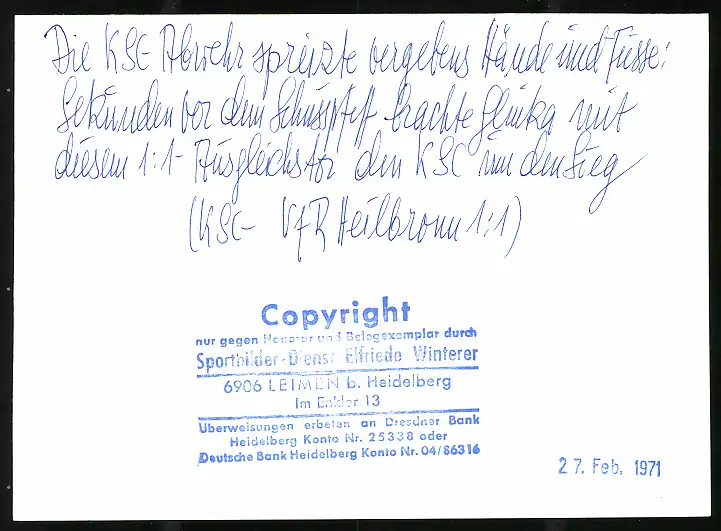 Die KSC-Abwehr spreizte vergebens Hände und Füsse:
Sekunden vor dem Schlusspfiff brachte Glinka mit
diesem 1:1-Ausgleichstor den KSC um den Sieg
(KSC- VfR Heilbronn 1:1)
Copyright
nur gegen Honorar und Belegexemplar durch
Sportbilder-Dienst Elfriede Winterer
6906 LEIMEN b. Heidelberg
Im Enkler 13
Überweisungen erbeten an Dresdner Bank
Heidelberg Konto Nr. 25338 oder
Deutsche Bank Heidelberg Konto Nr. 04/86316
27. Feb. 1971